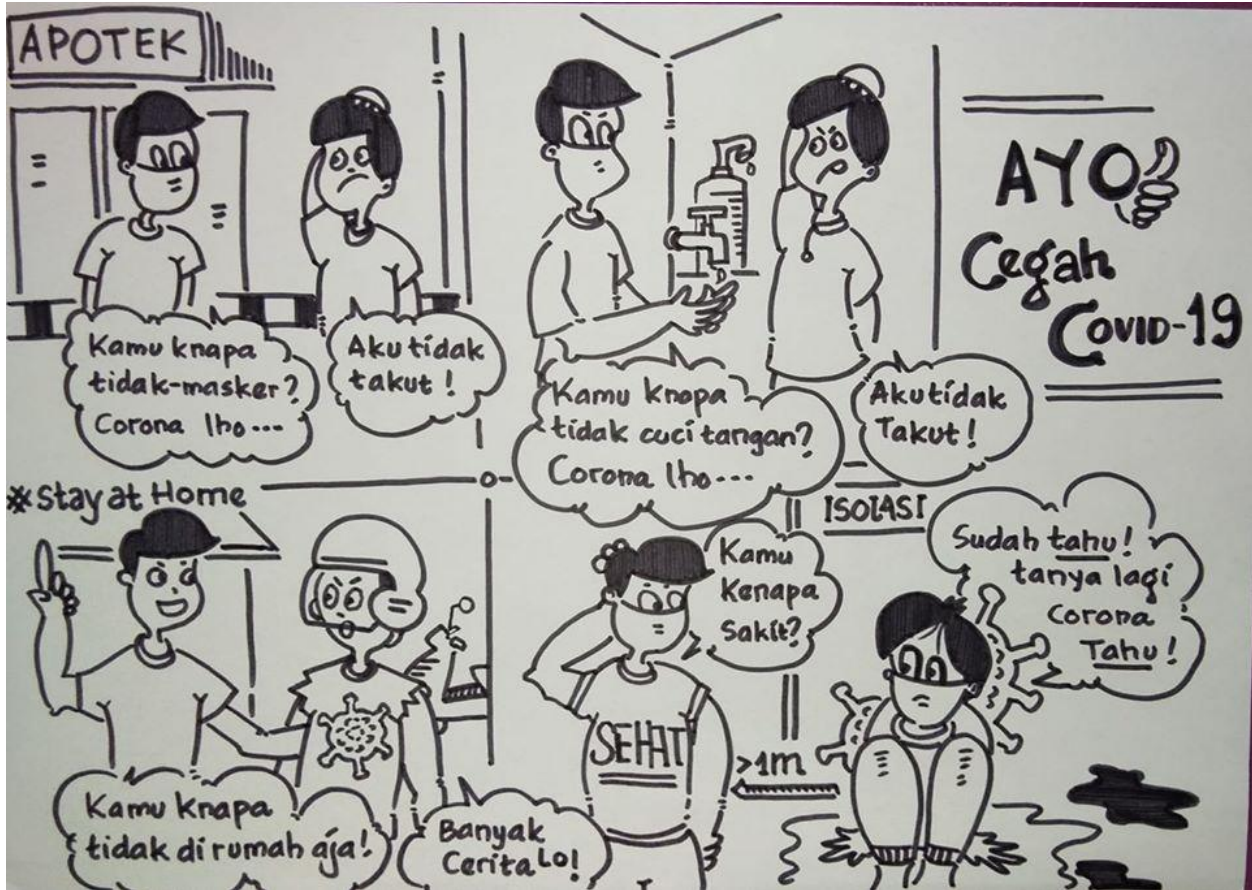 APOTEK
Kamu knapa
tidak-masker?
Corona lho...
Aku tidak
takut!
Kamu knapa
tidak cuci tangan?
Corona lho...
Aku tidak
Takut!
AYO
Cegah
COVID-19
*Stay at Home
Kamu knapa
tidak dirumah aja!
Banyak
Cerita Lo!
Kamu
Kenapa
Sakit?
SEHAT
>1m
ISOLASI
Sudah tahu!
tanya lagi
Corona
Tahu!